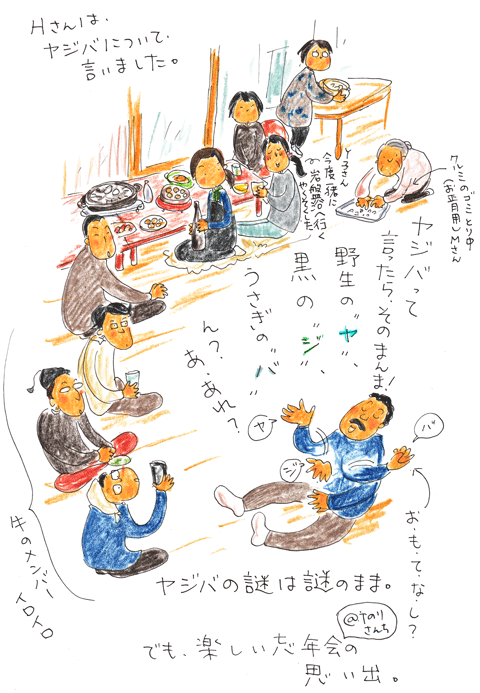 Hさんは、
ヤジバについて、
言いました。
Y子さん
今度彼に
岩盤浴へ行く
やくそくした
クルミのゴミとり中
(お正月用)Mさん
ヤジバって
言ったら、そのまんま!
野生の"ヤ"、
黒の"ジ"
うさぎの"バ"
ん?
あ、あれ?
ヤ
ジ
バ
お・も・て・な・し?
牛のメンバー
イロイロ
ヤジバの謎は謎のまま。
@やのり
さんち
でも、楽しい忘年会の
思い出。